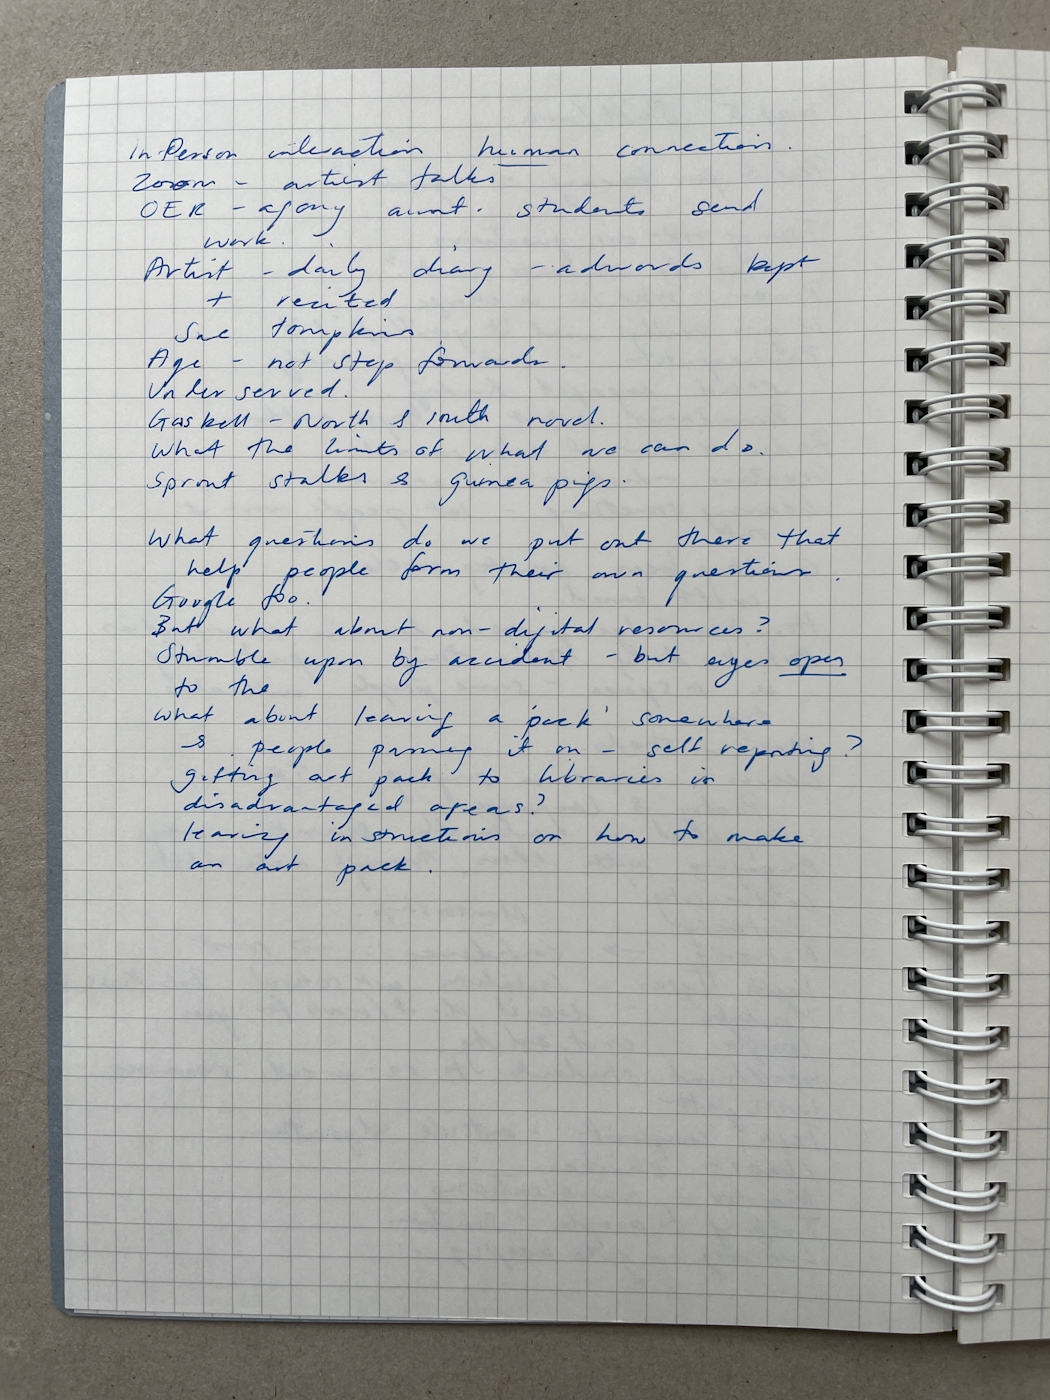 in-Person interaction human connection.
Zoom - artist talks
OER - agony aunt. students send
work.
Artist - daily diary - adwords kept
+ recited
Sue Tompkins
Age - not step forwards.
Underserved.
Gaskell - North & South novel.
What the limits of what we can do.
Sprout stalks & guinea pigs.
What questions do we put out there that
help people form their own questions.
Google foo.
But what about non-digital resources?
Stumble upon by accident - but eyes open
to the
what about leaving a 'pack' somewhere
& people passing it on - self reporting?
gifting art pack to libraries in
disadvantaged areas?
leaving instructions on how to make
an art pack.